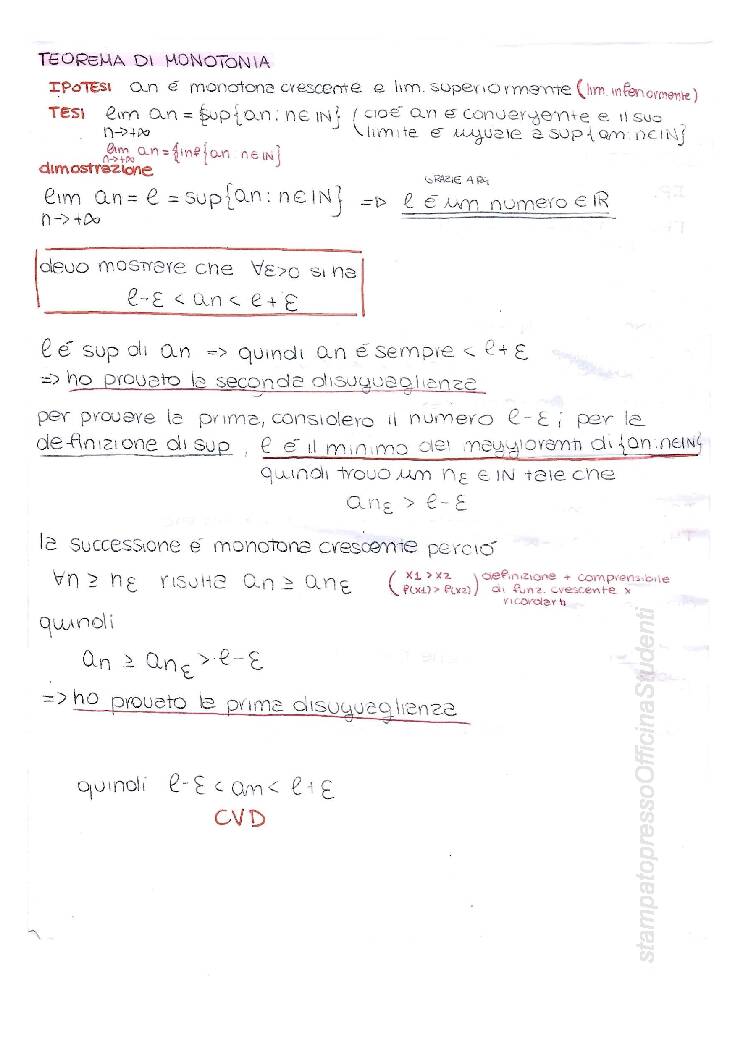 TEOREMA DI MONOTONIA
IPOTESI an é monotona crescente e lim. superiormente (lim. inferiormente)
TESI lim an = {sup{an: n∈IN} (cioé an é convergente e il suo
n->+∞ limite é uguale a sup{an: n∈IN}
lim an = {inf{an: n∈IN}
n->+∞
dimostrazione
lim an = l = sup{an: n∈IN} => l é un numero ∈ IR
n->+∞
GRAZIE A
devo mostrare che ∀ε>0 si ha
l-ε < an < l+ε
l é sup di an => quindi an é sempre < l+ε
=> ho provato la seconda disuguaglianza
per provare la prima, considero il numero l-ε; per la
definizione di sup, l é il minimo dei maggioranti di {an: n∈IN}
quindi trovo un nε ∈ IN tale che
anε > l-ε
la successione é monotona crescente perció
∀n ≥ nε risulta an ≥ anε (x1 > x2 f(x1) > f(x2)) definizione + comprensibile
di funz. crescente x
ricordarti
quindi
an ≥ anε > l-ε
=> ho provato la prima disuguaglianza
quindi l-ε < an < l+ε
CVD
stampatopressoOfficinaStudenti